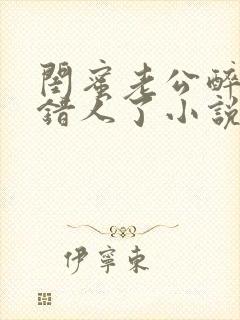 閨蜜老公醉
錯人了小說
伊寧東